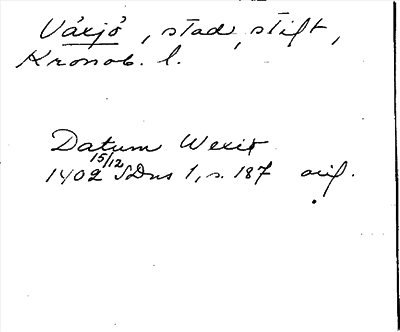 Växjö, stad, stift,
Kronob. l.
Datum Wexio
1402 15/12 SDns 1, s. 187 orig.